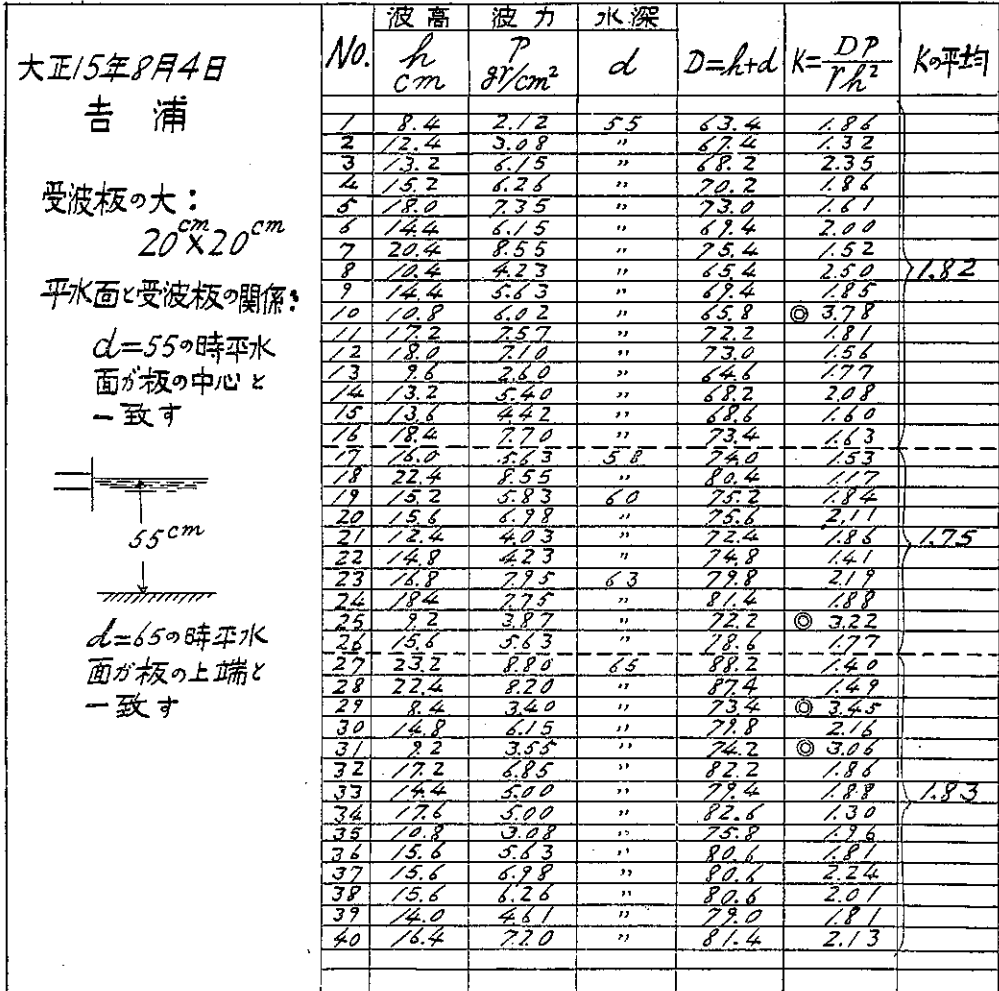 大正15年8月4日
吉浦
受波板の大：
20cm×20cm
平水面と受波板の関係：
d=55の時平水
面が板の中心と
一致す
55cm
d=65の時平水
面が板の上端と
一致す
波高 波力 水深
No. h cm P gr/cm² d D=h+d K=DP/rh² Kの平均
1 8.4 2.12 55 63.4 1.86
2 12.4 3.08 〃 67.4 1.32
3 13.2 6.15 〃 68.2 2.35
4 15.2 6.26 〃 70.2 1.86
5 18.0 7.35 〃 73.0 1.61
6 14.4 6.15 〃 69.4 2.00
7 20.4 8.55 〃 75.4 1.52
8 10.4 4.23 〃 65.4 2.50 1.82
9 14.4 5.63 〃 69.4 1.85
10 10.8 6.02 〃 65.8 ◎ 3.78
11 17.2 7.57 〃 72.2 1.81
12 18.0 7.10 〃 73.0 1.56
13 9.6 2.60 〃 64.6 1.77
14 13.2 5.40 〃 68.2 2.08
15 13.6 4.42 〃 68.6 1.60
16 18.4 7.70 〃 73.4 1.63
17 16.0 5.63 58 74.0 1.53
18 22.4 8.55 〃 80.4 1.17
19 15.2 5.83 60 75.2 1.84
20 15.6 6.98 〃 75.6 2.11
21 12.4 4.03 〃 72.4 1.86 1.75
22 14.8 4.23 〃 74.8 1.41
23 16.8 7.95 63 79.8 2.19
24 18.4 7.75 〃 81.4 1.88
25 9.2 3.87 〃 72.2 ◎ 3.22
26 15.6 5.63 〃 78.6 1.77
27 23.2 8.80 65 88.2 1.40
28 22.4 8.20 〃 87.4 1.49
29 8.4 3.40 〃 73.4 ◎ 3.45
30 14.8 6.15 〃 79.8 2.16
31 9.2 3.55 〃 74.2 ◎ 3.06
32 17.2 6.85 〃 82.2 1.86
33 14.4 5.00 〃 79.4 1.88 1.83
34 17.6 5.00 〃 82.6 1.30
35 10.8 3.08 〃 75.8 1.96
36 15.6 5.63 〃 80.6 1.81
37 15.6 6.98 〃 80.6 2.24
38 15.6 6.26 〃 80.6 2.01
39 14.0 4.61 〃 79.0 1.81
40 16.4 7.20 〃 81.4 2.13